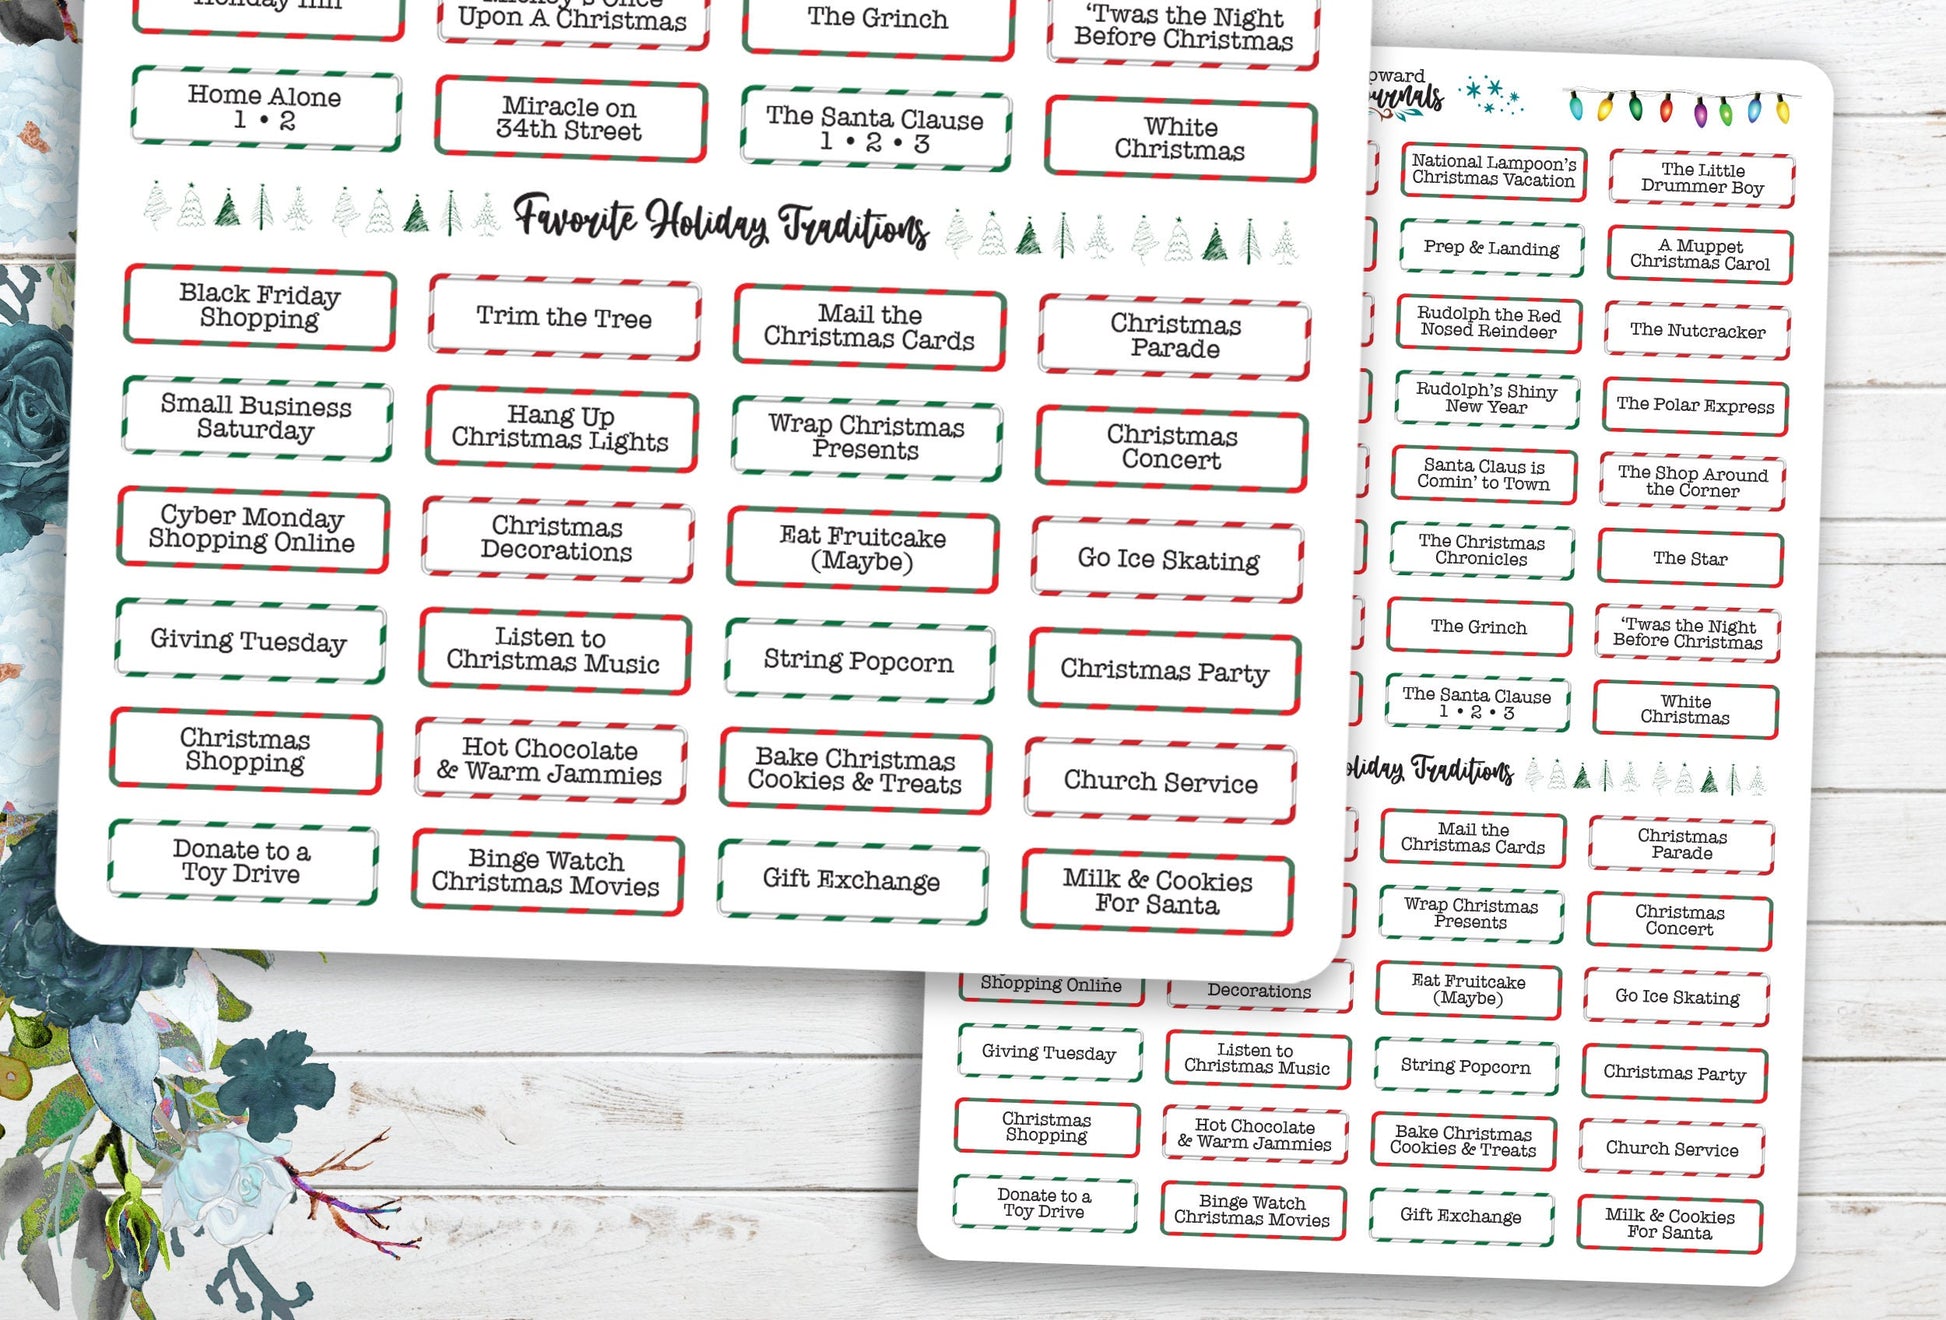 Holiday Inn
Mickey's Once
Upon A Christmas
The Grinch
'Twas the Night
Before Christmas
Home Alone
1 • 2
Miracle on
34th Street
The Santa Clause
1 • 2 • 3
White
Christmas
Favorite Holiday Traditions
Black Friday
Shopping
Trim the Tree
Mail the
Christmas Cards
Christmas
Parade
Small Business
Saturday
Hang Up
Christmas Lights
Wrap Christmas
Presents
Christmas
Concert
Cyber Monday
Shopping Online
Christmas
Decorations
Eat Fruitcake
(Maybe)
Go Ice Skating
Giving Tuesday
Listen to
Christmas Music
String Popcorn
Christmas Party
Christmas
Shopping
Hot Chocolate
& Warm Jammies
Bake Christmas
Cookies & Treats
Church Service
Donate to a
Toy Drive
Binge Watch
Christmas Movies
Gift Exchange
Milk & Cookies
For Santa
National Lampoon's
Christmas Vacation
The Little
Drummer Boy
Prep & Landing
A Muppet
Christmas Carol
Rudolph the Red
Nosed Reindeer
The Nutcracker
Rudolph's Shiny
New Year
The Polar Express
Santa Claus is
Comin' to Town
The Shop Around
the Corner
The Christmas
Chronicles
The Star
The Grinch
'Twas the Night
Before Christmas
The Santa Clause
1 • 2 • 3
White
Christmas
Traditions
Mail the
Christmas Cards
Christmas
Parade
Wrap Christmas
Presents
Christmas
Concert
Shopping Online
Decorations
Eat Fruitcake
(Maybe)
Go Ice Skating
Giving Tuesday
Listen to
Christmas Music
String Popcorn
Christmas Party
Christmas
Shopping
Hot Chocolate
& Warm Jammies
Bake Christmas
Cookies & Treats
Church Service
Donate to a
Toy Drive
Binge Watch
Christmas Movies
Gift Exchange
Milk & Cookies
For Santa